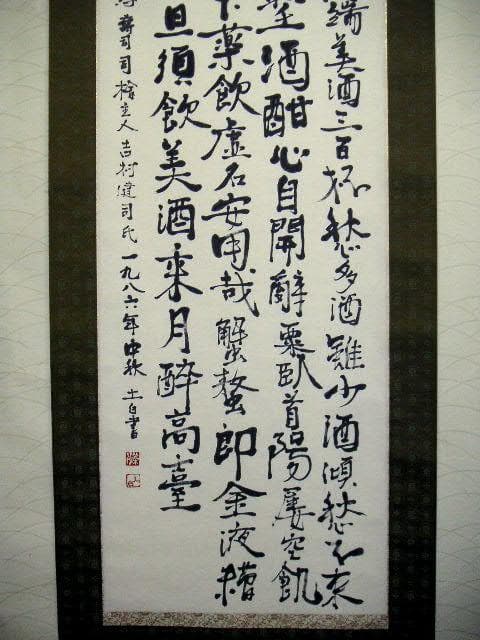 端美酒三百杯愁多酒雖少酒傾愁不來
聖酒酣心自開辭粟臥首陽屢空飢
不樂飲虛名安用哉蟹螯即金液糟
且須飲美酒乘月醉高臺
壽司司主人吉村健司氏一九八六年中秋 土白書